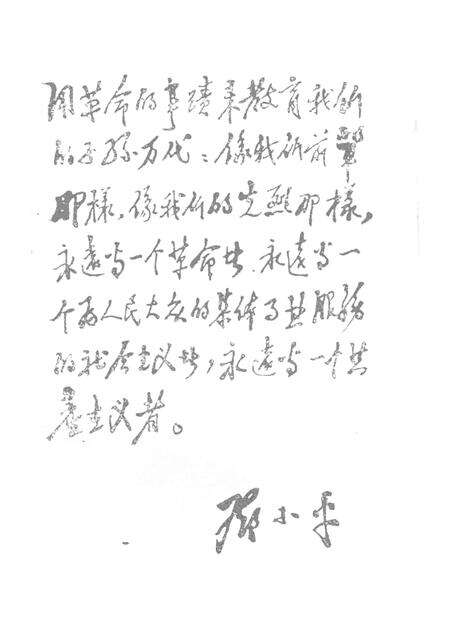 用革命的事蹟来教育我们
的子孙万代：像我们前辈
那樣，像我们的先烈那樣，
永遠当一个革命者，永遠当一
个为人民大众的集体事业服務
的社会主义者，永遠当一个共
產主义者。
邓小平